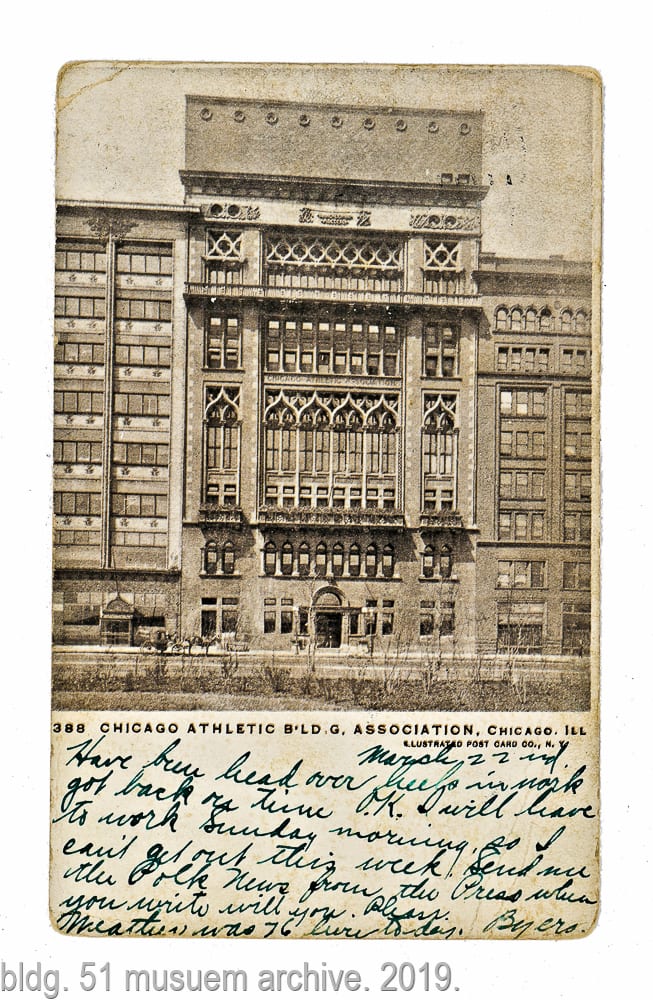 CHICAGO ATHLETIC ASSOCIATION
388 CHICAGO ATHLETIC B'LD.G, ASSOCIATION, CHICAGO. ILL
ILLUSTRATED POST CARD CO., N. Y.
March 22nd.
Have been head over heels in work
got back on time O.K. I will have
to work Sunday morning, so I
can't get out this week. Send me
the Polk News from the Press when
you write will you. Please.
Weather was 76 here today. Byers.
bldg. 51 musuem archive. 2019.